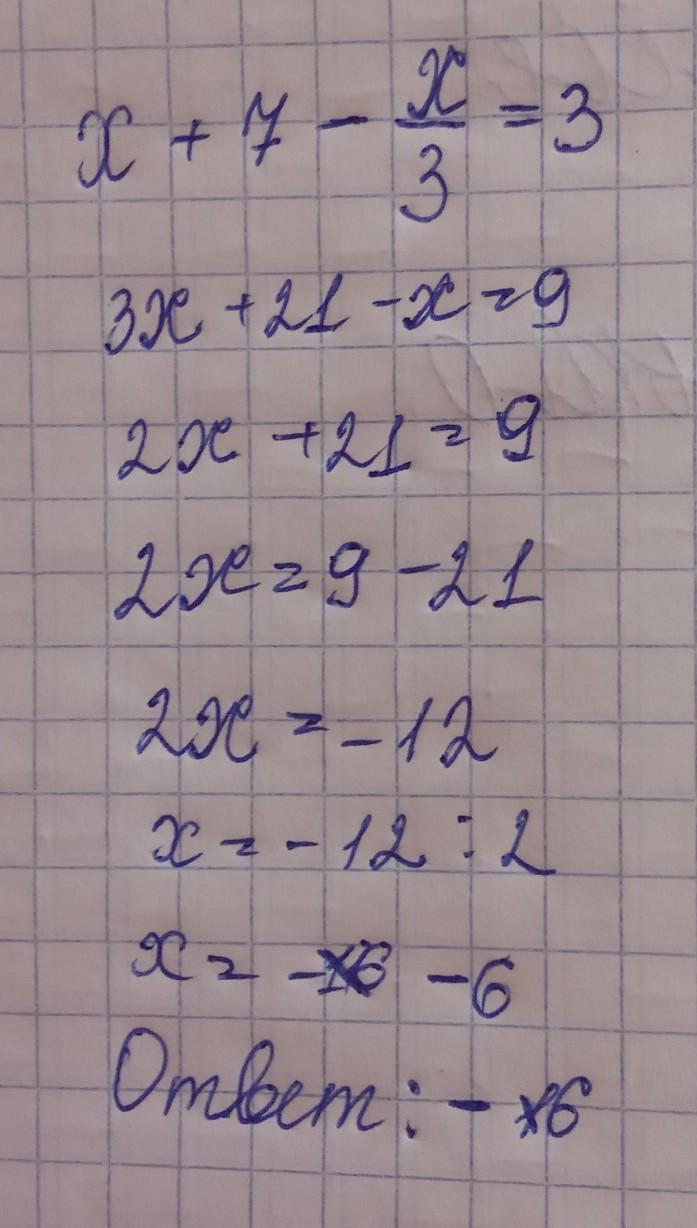 x + 7 - x/3 = 3
3x + 21 - x = 9
2x + 21 = 9
2x = 9 - 21
2x = -12
x = -12 : 2
x = - -6
Ответ: -6